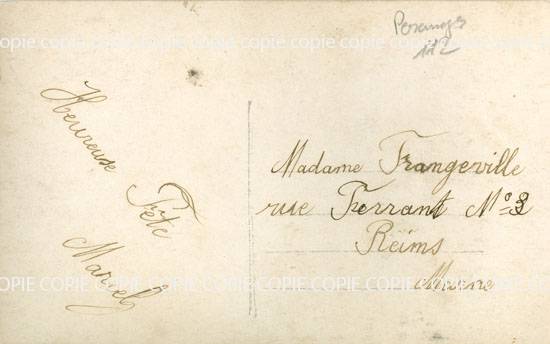 COPIE COPIE COPIE COPIE COPIE COPIE COPIE COPIE COPIE COPIE
112
Heureuse
Fête
Marcel
Madame Frangeville
rue Ferrant No 3
Reims
Marne
COPIE COPIE COPIE COPIE COPIE COPIE COPIE COPIE COPIE COPIE